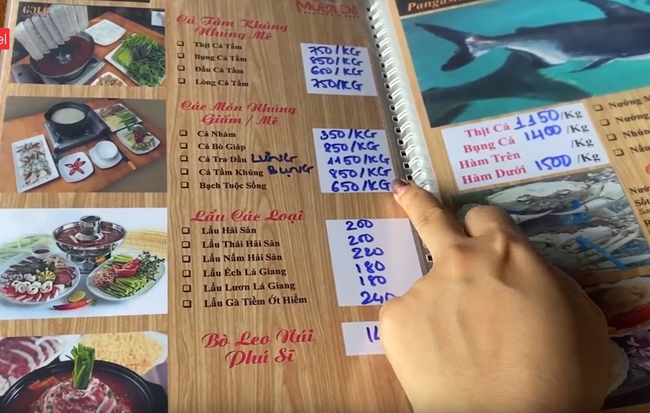 MƯỜI ĐỂ
Cá Tầm Khủng
Nhúng Mẻ
Thịt Cá Tầm 750/KG
Bụng Cá Tầm 850/KG
Đầu Cá Tầm 600/KG
Lòng Cá Tầm 750/KG
Các Món Nhúng
Giấm / Mẻ
Cá Nhám 350/KG
Cá Bò Giáp 850/KG
Cá Tra Dầu LƯNG 1150/KG
Cá Tầm Khủng BỤNG 850/KG
Bạch Tuộc Sống 650/KG
Lẩu Các Loại
Lẩu Hải Sản 200
Lẩu Thái Hải Sản 200
Lẩu Nấm Hải Sản 220
Lẩu Ếch Lá Giang 180
Lẩu Lươn Lá Giang 180
Lẩu Gà Tiềm Ớt Hiểm 240
Bò Leo Núi
Phú Sĩ
Thịt Cá 1150/Kg
Bụng Cá 1400/Kg
Hàm Trên /Kg
Hàm Dưới 1500/Kg
Nướng
Nướng
Nhún